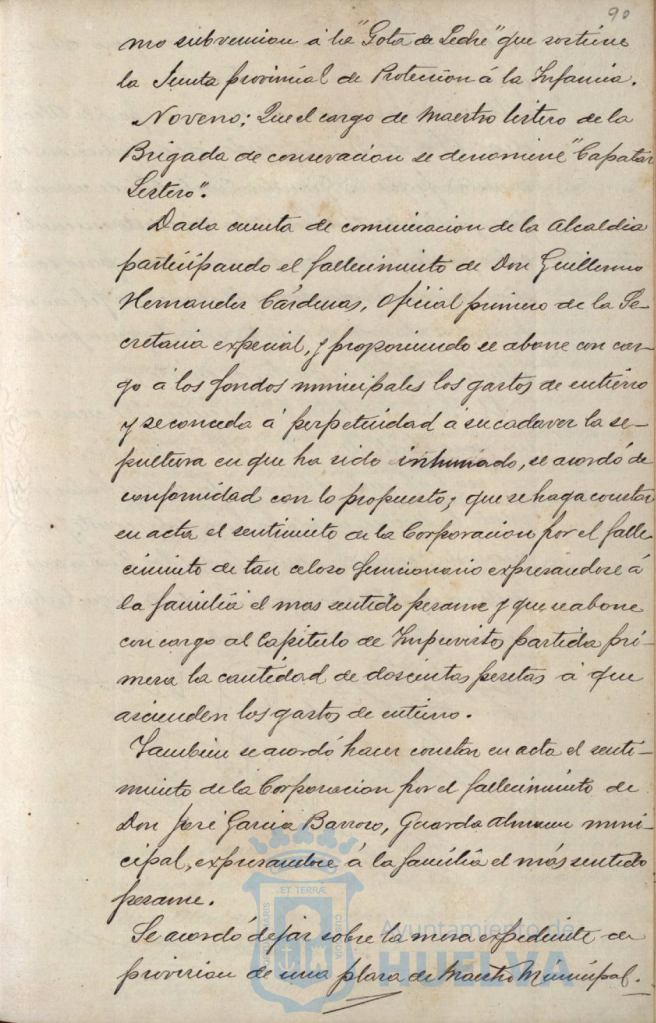 90
mo subvencion á la "Gota de Leche" que sostiene
la Junta provincial de Proteccion á la Infancia.
Noveno; Que el cargo de Maestro listero de la
Brigada de conservacion se denomine "Capataz
Listero".
Dada cuenta de comunicacion de la Alcaldia
participando el fallecimiento de Don Guillermo
Hernandez Cárdenas, Oficial primero de la Se-
cretaria especial, y proponiendo se abone con car-
go á los fondos municipales los gastos de entierro
y se conceda á perpetuidad á su cadaver la se-
pultura en que ha sido inhumado, se acordó de
conformidad con lo propuesto; que se haga constar
en acta el sentimiento de la Corporacion por el falle-
cimiento de tan celoso funcionario expresandose á
la familia el mas sentido pesame y que se abone
con cargo al Capitulo de Imprevistos partida pri-
mera la cantidad de doscientas pesetas á que
ascienden los gastos de entierro.
Tambien se acordó hacer constar en acta el senti-
miento de la Corporacion por el fallecimiento de
Don José Garcia Barroso, Guarda almacen muni-
cipal, expresandose á la familia el más sentido
pesame.
Se acordó dejar sobre la mesa expediente de
provision de una plaza de Maestro Municipal.
ET TERRÆ
PORTUS MARIS
CUSTODIA
Ayuntamiento de
HUELVA